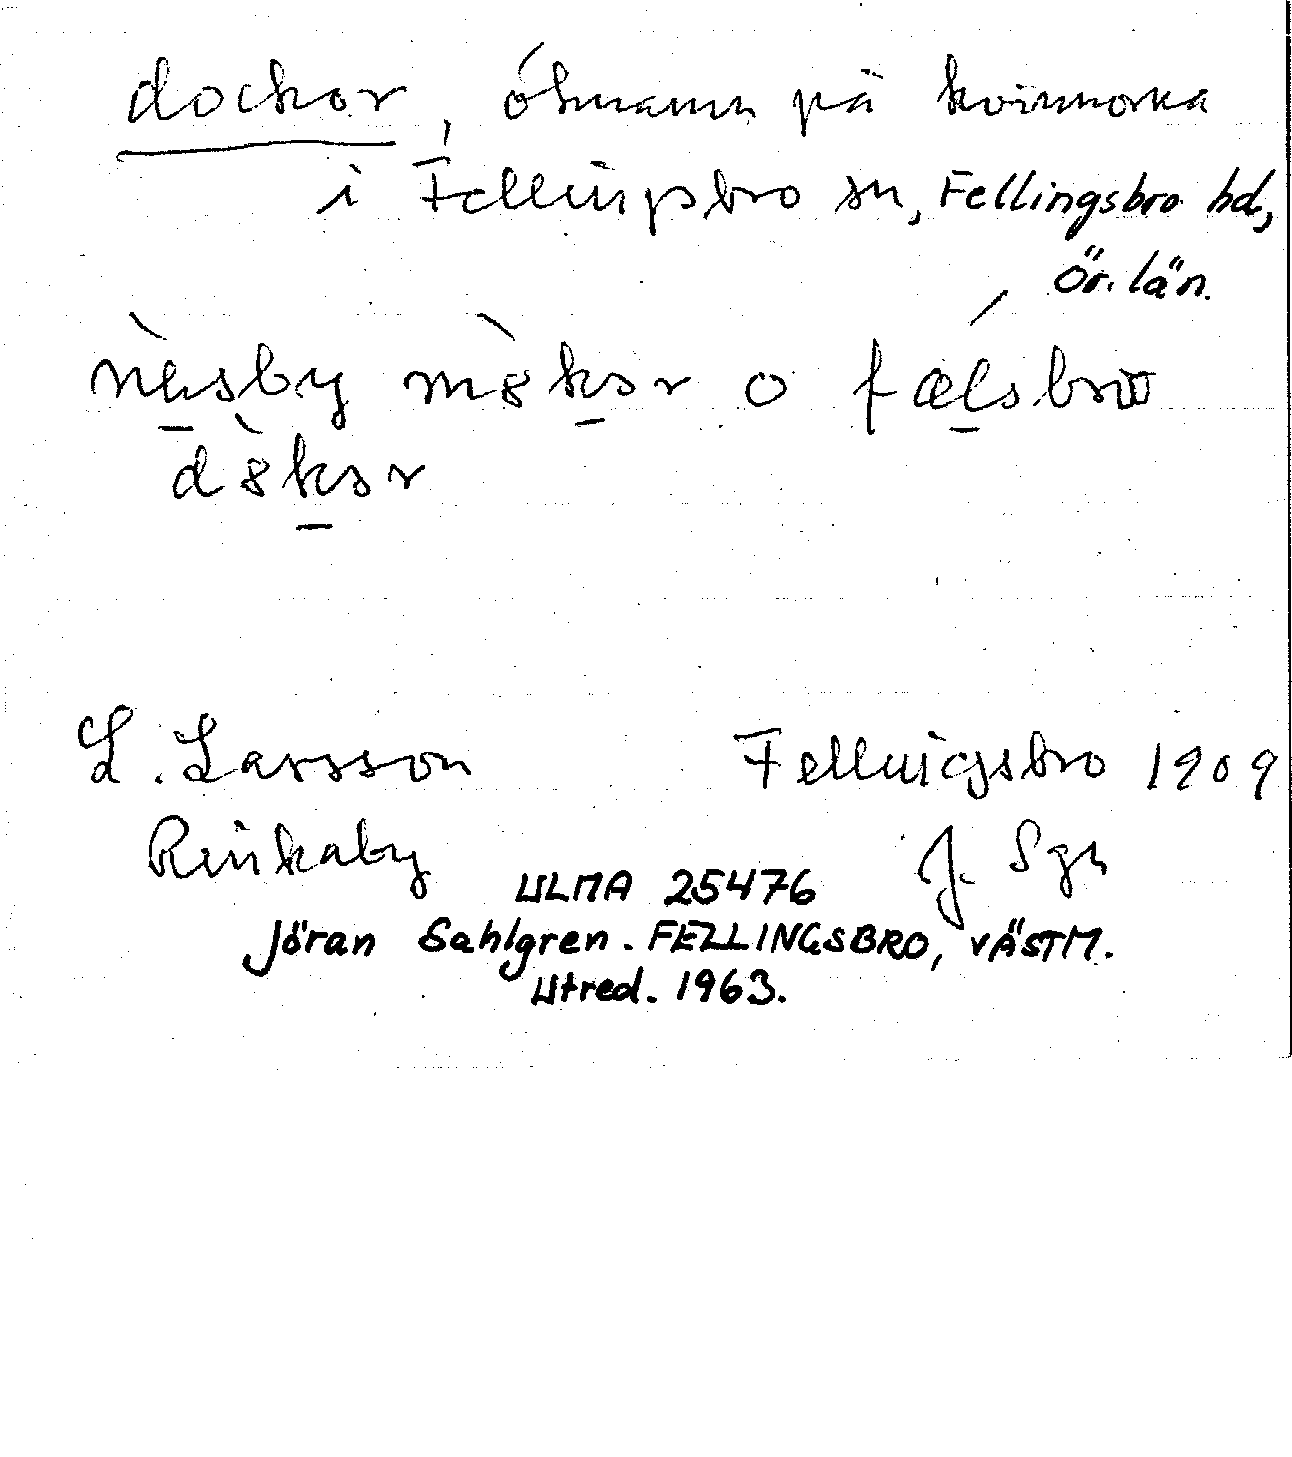 dockor, öknamn på kvinnorna
i Fellingsbro sn, Fellingsbro hd,
Ör. län.
näsby mȣkɘr o fælsbro
dȣkɘr
L. Larsson Fellingsbro 1909
Rinkaby J. Sgn
ULMA 25476
Jöran Sahlgren. FELLINGSBRO, VÄSTM.
Utred. 1963.